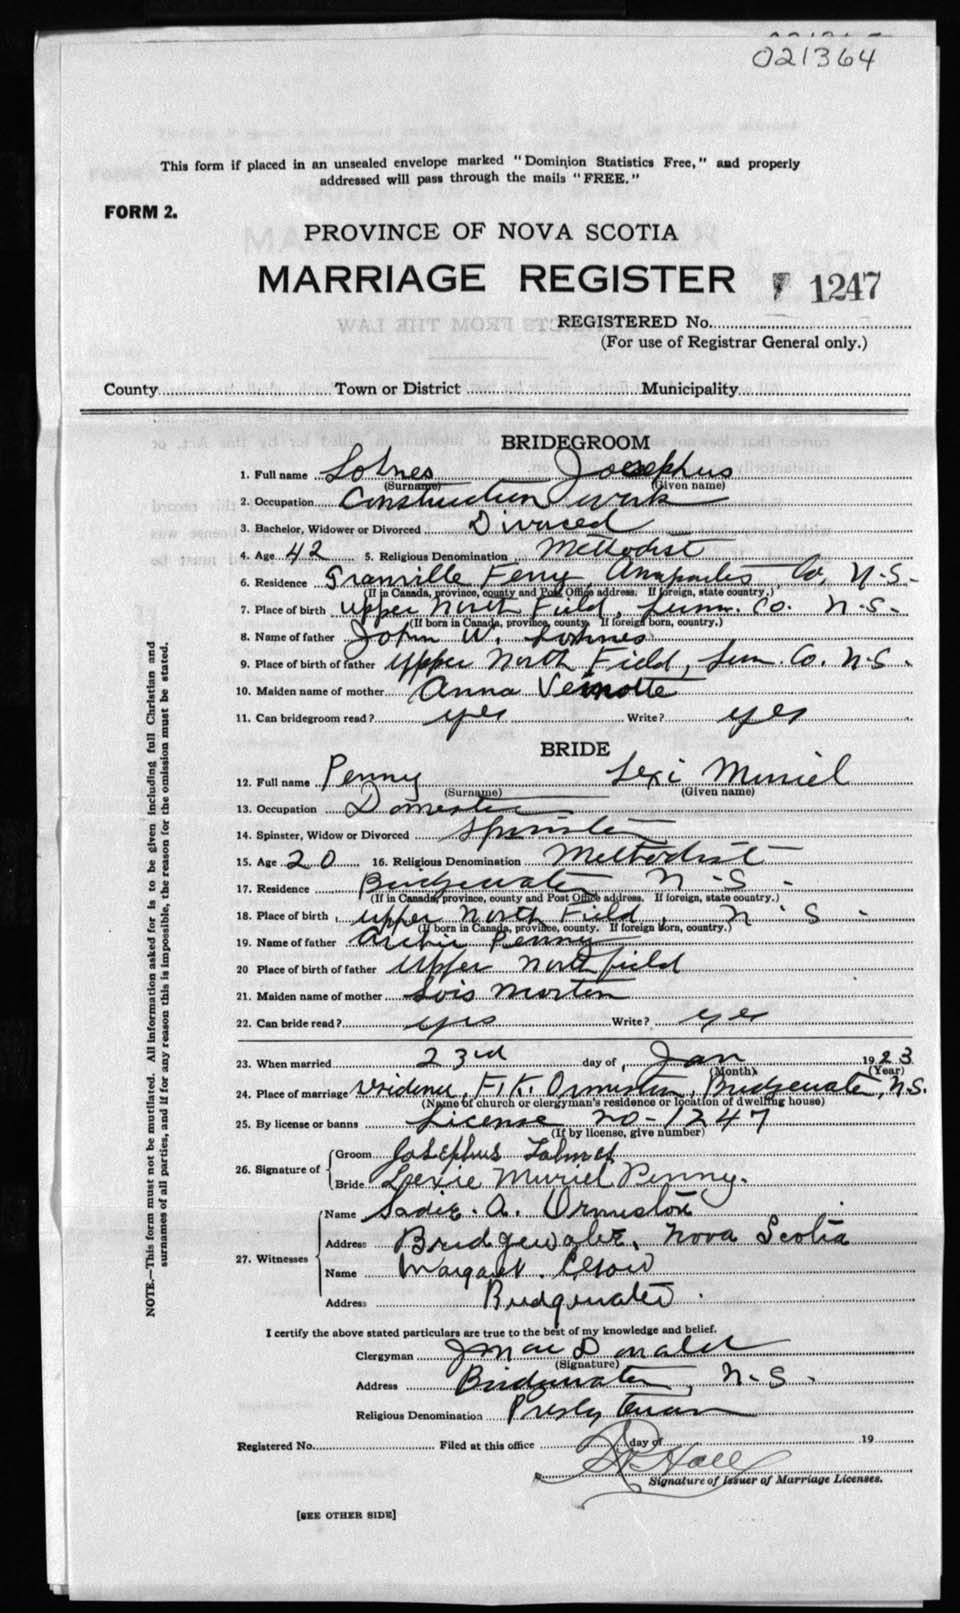 021364
This form if placed in an unsealed envelope marked "Dominion Statistics Free," and properly
addressed will pass through the mails "FREE."
FORM 2.
PROVINCE OF NOVA SCOTIA
MARRIAGE REGISTER 1247
REGISTERED No.
(For use of Registrar General only.)
County Town or District Municipality
BRIDEGROOM
1. Full name Lohnes Josephus
(Surname) (Given name)
2. Occupation Construction work
3. Bachelor, Widower or Divorced Divorced
4. Age 42 5. Religious Denomination Methodist
6. Residence Granville Ferry, Annapolis Co, N.S.
(If in Canada, province, county and Post Office address. If foreign, state country.)
7. Place of birth Upper North Field, Lunn. Co. N.S.
(If born in Canada, province, county. If foreign born, country.)
8. Name of father John W. Lohnes
9. Place of birth of father Upper North Field, Lun. Co. N.S.
10. Maiden name of mother Anna Veinotte
11. Can bridegroom read? yes Write? yes
BRIDE
12. Full name Penny Lexi Muriel
(Surname) (Given name)
13. Occupation Domestic
14. Spinster, Widow or Divorced Spinster
15. Age 20 16. Religious Denomination Methodist
17. Residence Bridgewater N.S.
(If in Canada, province, county and Post Office address. If foreign, state country.)
18. Place of birth Upper North Field, N.S.
(If born in Canada, province, county. If foreign born, country.)
19. Name of father Archie Penny
20 Place of birth of father Upper Northfield
21. Maiden name of mother Lois Morton
22. Can bride read? yes Write? yes
23. When married 23rd day of Jan 1923
(Month) (Year)
24. Place of marriage residence, F.K. Ormiston, Bridgewater, N.S.
(Name of church or clergyman's residence or location of dwelling house)
25. By license or banns License no-1247
(If by license, give number)
26. Signature of Groom Josephus Lohnes
Bride Lexie Muriel Penny.
27. Witnesses Name Sadie. A. Ormiston
Address Bridgewater, Nova Scotia
Name Margaret
Address Bridgewater.
I certify the above stated particulars are true to the best of my knowledge and belief.
Clergyman J MacDonald
(Signature)
Address Bridgewater, N.S.
Religious Denomination Presbyterian
Registered No. Filed at this office day of 19
Hall
Signature of Issuer of Marriage Licenses.
[SEE OTHER SIDE]
NOTE.—This form must not be mutilated. All information asked for is to be given including full Christian and
surnames of all parties, and if for any reason this is impossible, the reason for the omission must be stated.